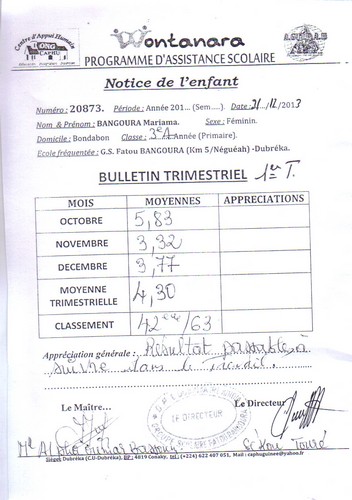 Centre d'Appui Humain
ONG
CAPHU
Wontanara
PROGRAMME D'ASSISTANCE SCOLAIRE
Notice de l'enfant
Numéro : 20873. Période : Année 201... (Sem.....). Date : 31../12/2013
Nom & Prénom : BANGOURA Mariama. Sexe : Féminin.
Domicile : Bondabon Classe : 3e A Année (Primaire).
Ecole fréquentée : G.S. Fatou BANGOURA (Km 5/Néguéah) -Dubréka.
BULLETIN TRIMESTRIEL 1er T.
MOIS MOYENNES APPRECIATIONS
OCTOBRE 5,83
NOVEMBRE 3,32
DECEMBRE 3,77
MOYENNE TRIMESTRIELLE 4,30
CLASSEMENT 42ème/63
Appréciation générale : Résultat passable à
suivre dans le travail.
Le Maître... Le Directeur
LE DIRECTEUR
Siège: Dubréka (C.U-Dubréka), BP : 4819 Conakry, tel : (+224) 622 407 051, Mail : caphuguinee@yahoo.fr